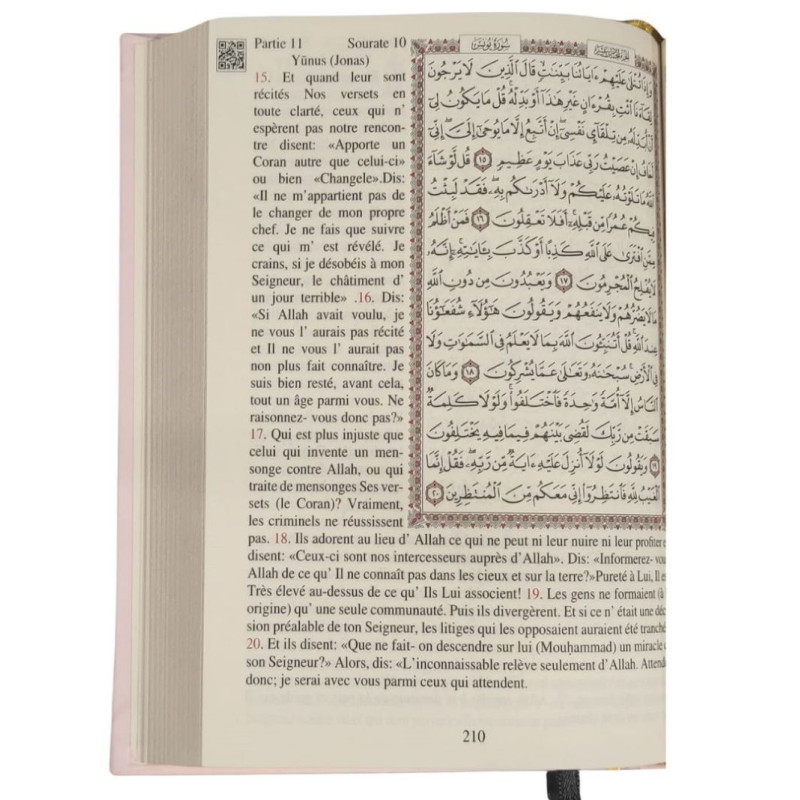 Partie 11 Sourate 10
Yūnus (Jonas)
15. Et quand leur sont
récités Nos versets en
toute clarté, ceux qui n’
espèrent pas notre rencon-
tre disent: «Apporte un
Coran autre que celui-ci»
ou bien «Changele».Dis:
«Il ne m’appartient pas de
le changer de mon propre
chef. Je ne fais que suivre
ce qui m’ est révélé. Je
crains, si je désobéis à mon
Seigneur, le châtiment d’
un jour terrible» .16. Dis:
«Si Allah avait voulu, je
ne vous l’ aurais pas récité
et Il ne vous l’ aurait pas
non plus fait connaître. Je
suis bien resté, avant cela,
tout un âge parmi vous. Ne
raisonnez- vous donc pas?»
17. Qui est plus injuste que
celui qui invente un men-
songe contre Allah, ou qui
traite de mensonges Ses ver-
sets (le Coran)? Vraiment,
les criminels ne réussissent
pas. 18. Ils adorent au lieu d’ Allah ce qui ne peut ni leur nuire ni leur profiter e
disent: «Ceux-ci sont nos intercesseurs auprès d’Allah». Dis: «Informerez- vou
Allah de ce qu’ Il ne connaît pas dans les cieux et sur la terre?»Pureté à Lui, Il e
Très élevé au-dessus de ce qu’ Ils Lui associent! 19. Les gens ne formaient (à
origine) qu’ une seule communauté. Puis ils divergèrent. Et si ce n’ était une déc
sion préalable de ton Seigneur, les litiges qui les opposaient auraient été tranché
20. Et ils disent: «Que ne fait- on descendre sur lui (Mouḥammad) un miracle d
son Seigneur?» Alors, dis: «L’inconnaissable relève seulement d’Allah. Attend
donc; je serai avec vous parmi ceux qui attendent.
سورة يونس
وَإِذَا تُتْلَىٰ عَلَيْهِمْ ءَايَاتُنَا بَيِّنَٰتٍ قَالَ ٱلَّذِينَ لَا يَرْجُونَ
لِقَآءَنَا ٱئْتِ بِقُرْءَانٍ غَيْرِ هَٰذَآ أَوْ بَدِّلْهُ قُلْ مَا يَكُونُ لِىٓ
أَنْ أُبَدِّلَهُۥ مِن تِلْقَآئِ نَفْسِىٓ إِنْ أَتَّبِعُ إِلَّا مَا يُوحَىٰٓ إِلَىَّ إِنِّىٓ
أَخَافُ إِنْ عَصَيْتُ رَبِّى عَذَابَ يَوْمٍ عَظِيمٍ ١٥ قُل لَّوْ شَآءَ
ٱللَّهُ مَا تَلَوْتُهُۥ عَلَيْكُمْ وَلَآ أَدْرَىٰكُم بِهِۦ فَقَدْ لَبِثْتُ
فِيكُمْ عُمُرًا مِّن قَبْلِهِۦٓ أَفَلَا تَعْقِلُونَ ١٦ فَمَنْ أَظْلَمُ
مِمَّنِ ٱفْتَرَىٰ عَلَى ٱللَّهِ كَذِبًا أَوْ كَذَّبَ بِـَٔايَٰتِهِۦٓ إِنَّهُۥ
لَا يُفْلِحُ ٱلْمُجْرِمُونَ ١٧ وَيَعْبُدُونَ مِن دُونِ ٱللَّهِ
مَا لَا يَضُرُّهُمْ وَلَا يَنفَعُهُمْ وَيَقُولُونَ هَٰٓؤُلَآءِ شُفَعَٰٓؤُنَا
عِندَ ٱللَّهِ قُلْ أَتُنَبِّـُٔونَ ٱللَّهَ بِمَا لَا يَعْلَمُ فِى ٱلسَّمَٰوَٰتِ وَلَا
فِى ٱلْأَرْضِ سُبْحَٰنَهُۥ وَتَعَٰلَىٰ عَمَّا يُشْرِكُونَ ١٨ وَمَا كَانَ
ٱلنَّاسُ إِلَّآ أُمَّةً وَٰحِدَةً فَٱخْتَلَفُوا۟ وَلَوْلَا كَلِمَةٌ
سَبَقَتْ مِن رَّبِّكَ لَقُضِىَ بَيْنَهُمْ فِيمَا فِيهِ يَخْتَلِفُونَ
١٩ وَيَقُولُونَ لَوْلَآ أُنزِلَ عَلَيْهِ ءَايَةٌ مِّن رَّبِّهِۦ فَقُلْ إِنَّمَا
ٱلْغَيْبُ لِلَّهِ فَٱنتَظِرُوٓا۟ إِنِّى مَعَكُم مِّنَ ٱلْمُنتَظِرِينَ ٢٠
210